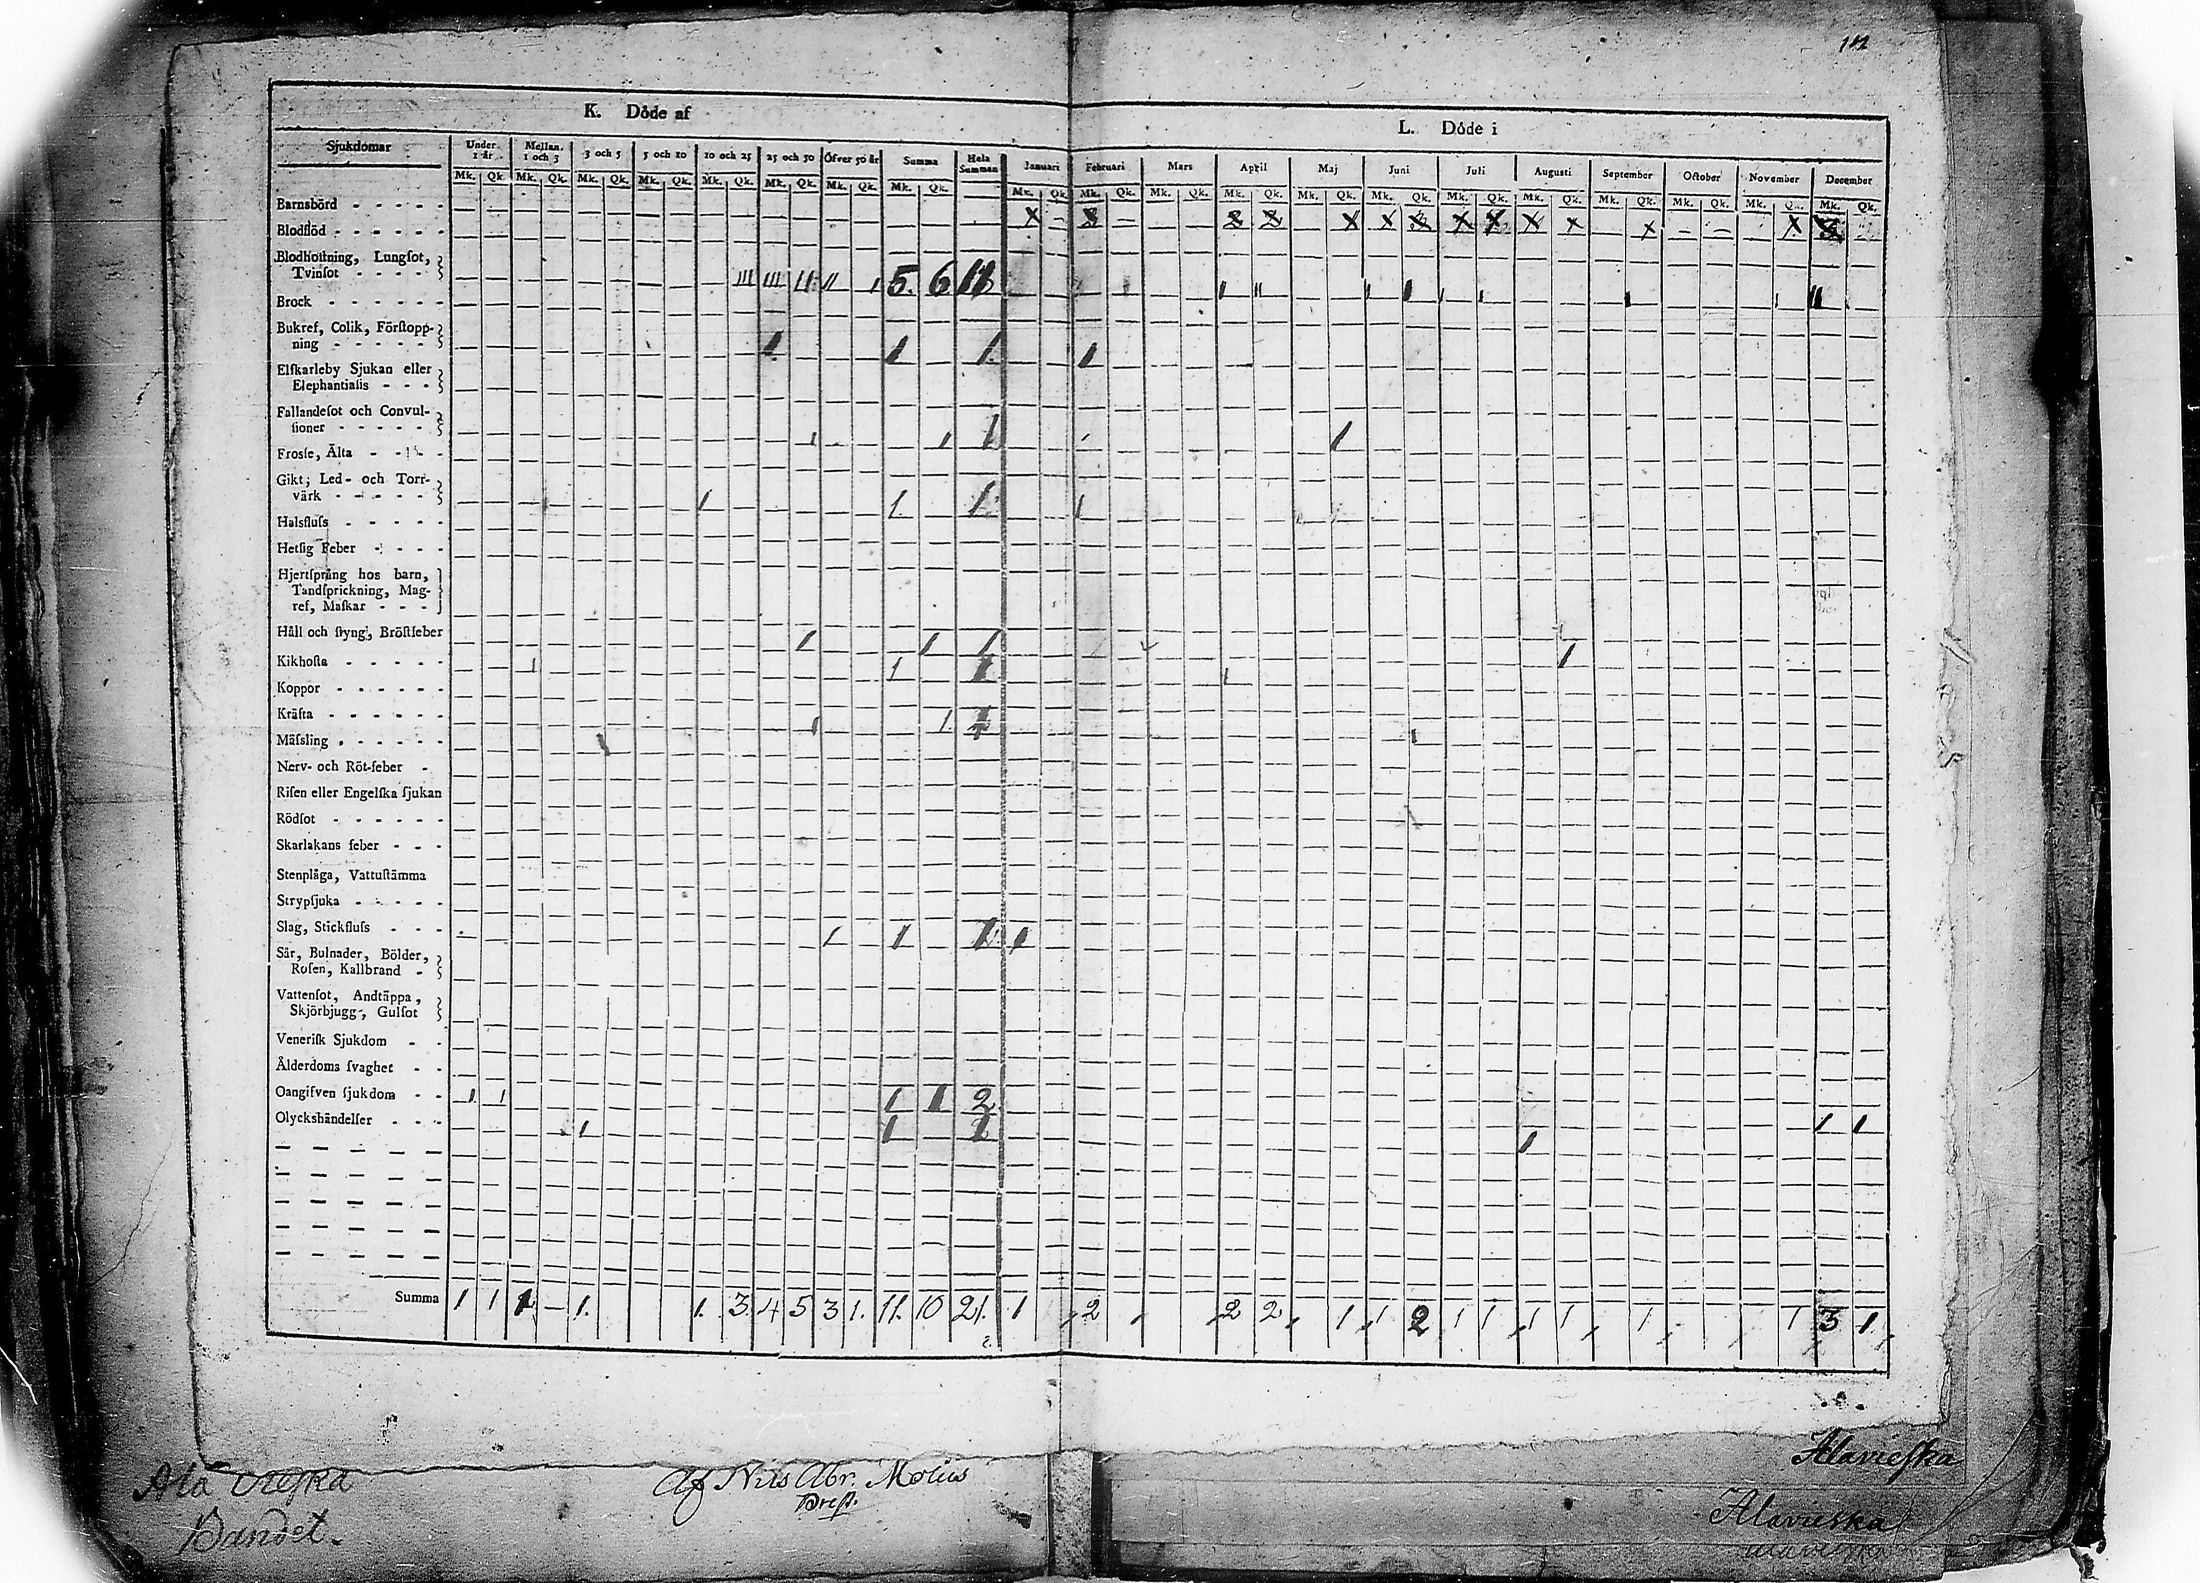 K. Döde af
L. Döde i
Sjukdomar
Under 1 år
Mellan. 1 och 3
3 och 5
5 och 10
10 och 25
25 och 50
Öfver 50 år
Summa
Hela Summan
Januari Februari Mars April Maj Juni Juli Augusti September October November December
Mk. Qk. Mk. Qk. Mk. Qk. Mk. Qk. Mk. Qk. Mk. Qk. Mk. Qk. Mk. Qk.
Mk. Qk. Mk. Qk. Mk. Qk. Mk. Qk. Mk. Qk. Mk. Qk. Mk. Qk. Mk. Qk. Mk. Qk. Mk. Qk. Mk. Qk. Mk. Qk.
Barnsbörd - - - - -
Blodflöd - - - - - -
Blodhostning, Lungſot,
Tvinſot - - - - III III II II 1 5. 6 11
Brock - - - - - -
Bukref, Colik, Förſtopp-
ning - - - - - 1 1 1. 1
Elſkarleby Sjukan eller
Elephantiaſis - - -
Fallandeſot och Convul-
ſioner - - - - - 1 1 1 1
Froſſe, Älta - - - -
Gikt, Led- och Torr-
värk - - - - - 1 1 1 1
Halsfluſs - - - - -
Hetſig Feber - - - -
Hjertſprång hos barn,
Tandſprickning, Mag-
ref, Maſkar - - -
Håll och ſtyng, Bröſtfeber 1 1 1 1
Kikhoſta - - - - - 1 1 1 1
Koppor - - - - - -
Kräfta - - - - - - 1 1 1 1
Mäſsling - - - - - -
Nerv- och Röt-feber -
Riſen eller Engelſka ſjukan
Rödſot - - - - - -
Skarlakans feber - - -
Stenplåga, Vattuſtämma
Strypſjuka - - - - -
Slag, Stickfluſs - - - 1 1 1 1
Sår, Bulnader, Bölder,
Roſen, Kallbrand -
Vattenſot, Andtäppa,
Skjörbjugg, Gulſot
Veneriſk Sjukdom - -
Ålderdoms ſvaghet - -
Oangifven ſjukdom - - 1 1 1 1 2 1 1
Olyckshändelſer - - - 1 1 1 1
Summa 1 1 1 — 1. 1. 3. 4 5 3 1. 11. 10 21. 1 2 2 2 1 1 2 1 1 1 1 1 1 3 1
Ala vieſka
Bandet.
Af Nils Abr. Molius
Preſt.
Alavieſka
Alavieska